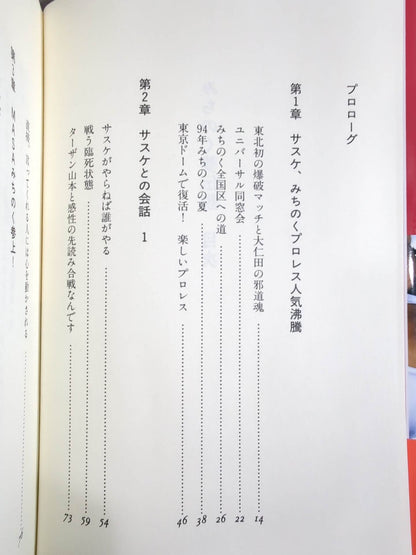 プロローグ
第1章 サスケ、みちのくプロレス人気沸騰
東北初の爆破マッチと大仁田の邪道魂 14
ユニバーサル同窓会 22
みちのく全国区への道 26
94年みちのくの夏 38
東京ドームで復活! 楽しいプロレス 46
第2章 サスケとの会話 1
サスケがやらねば誰がやる 54
戦う臨死状態 59
ターザン山本と感性の先読み合戦なんです 73
MASAみちのく参上!